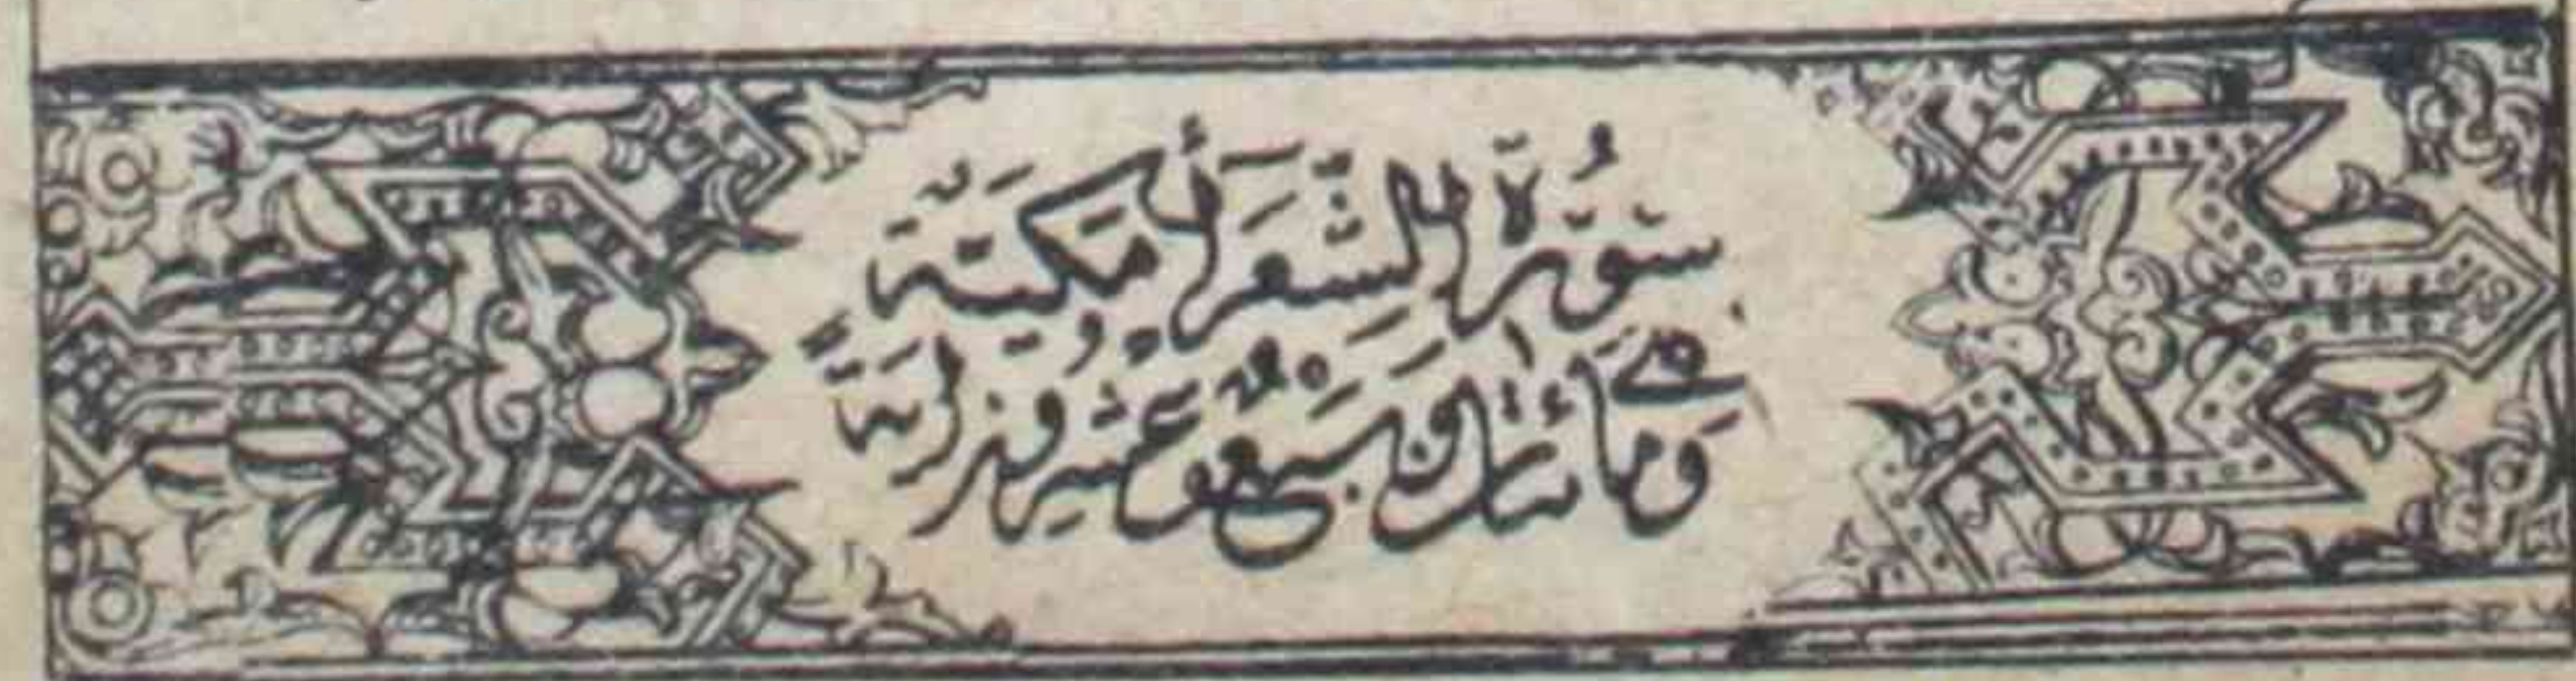 سُورَةُ الشُّعَرَأ مَكِّيَّة
وَهِيَ مائتان وَسَبْع وعشرون ايَةً